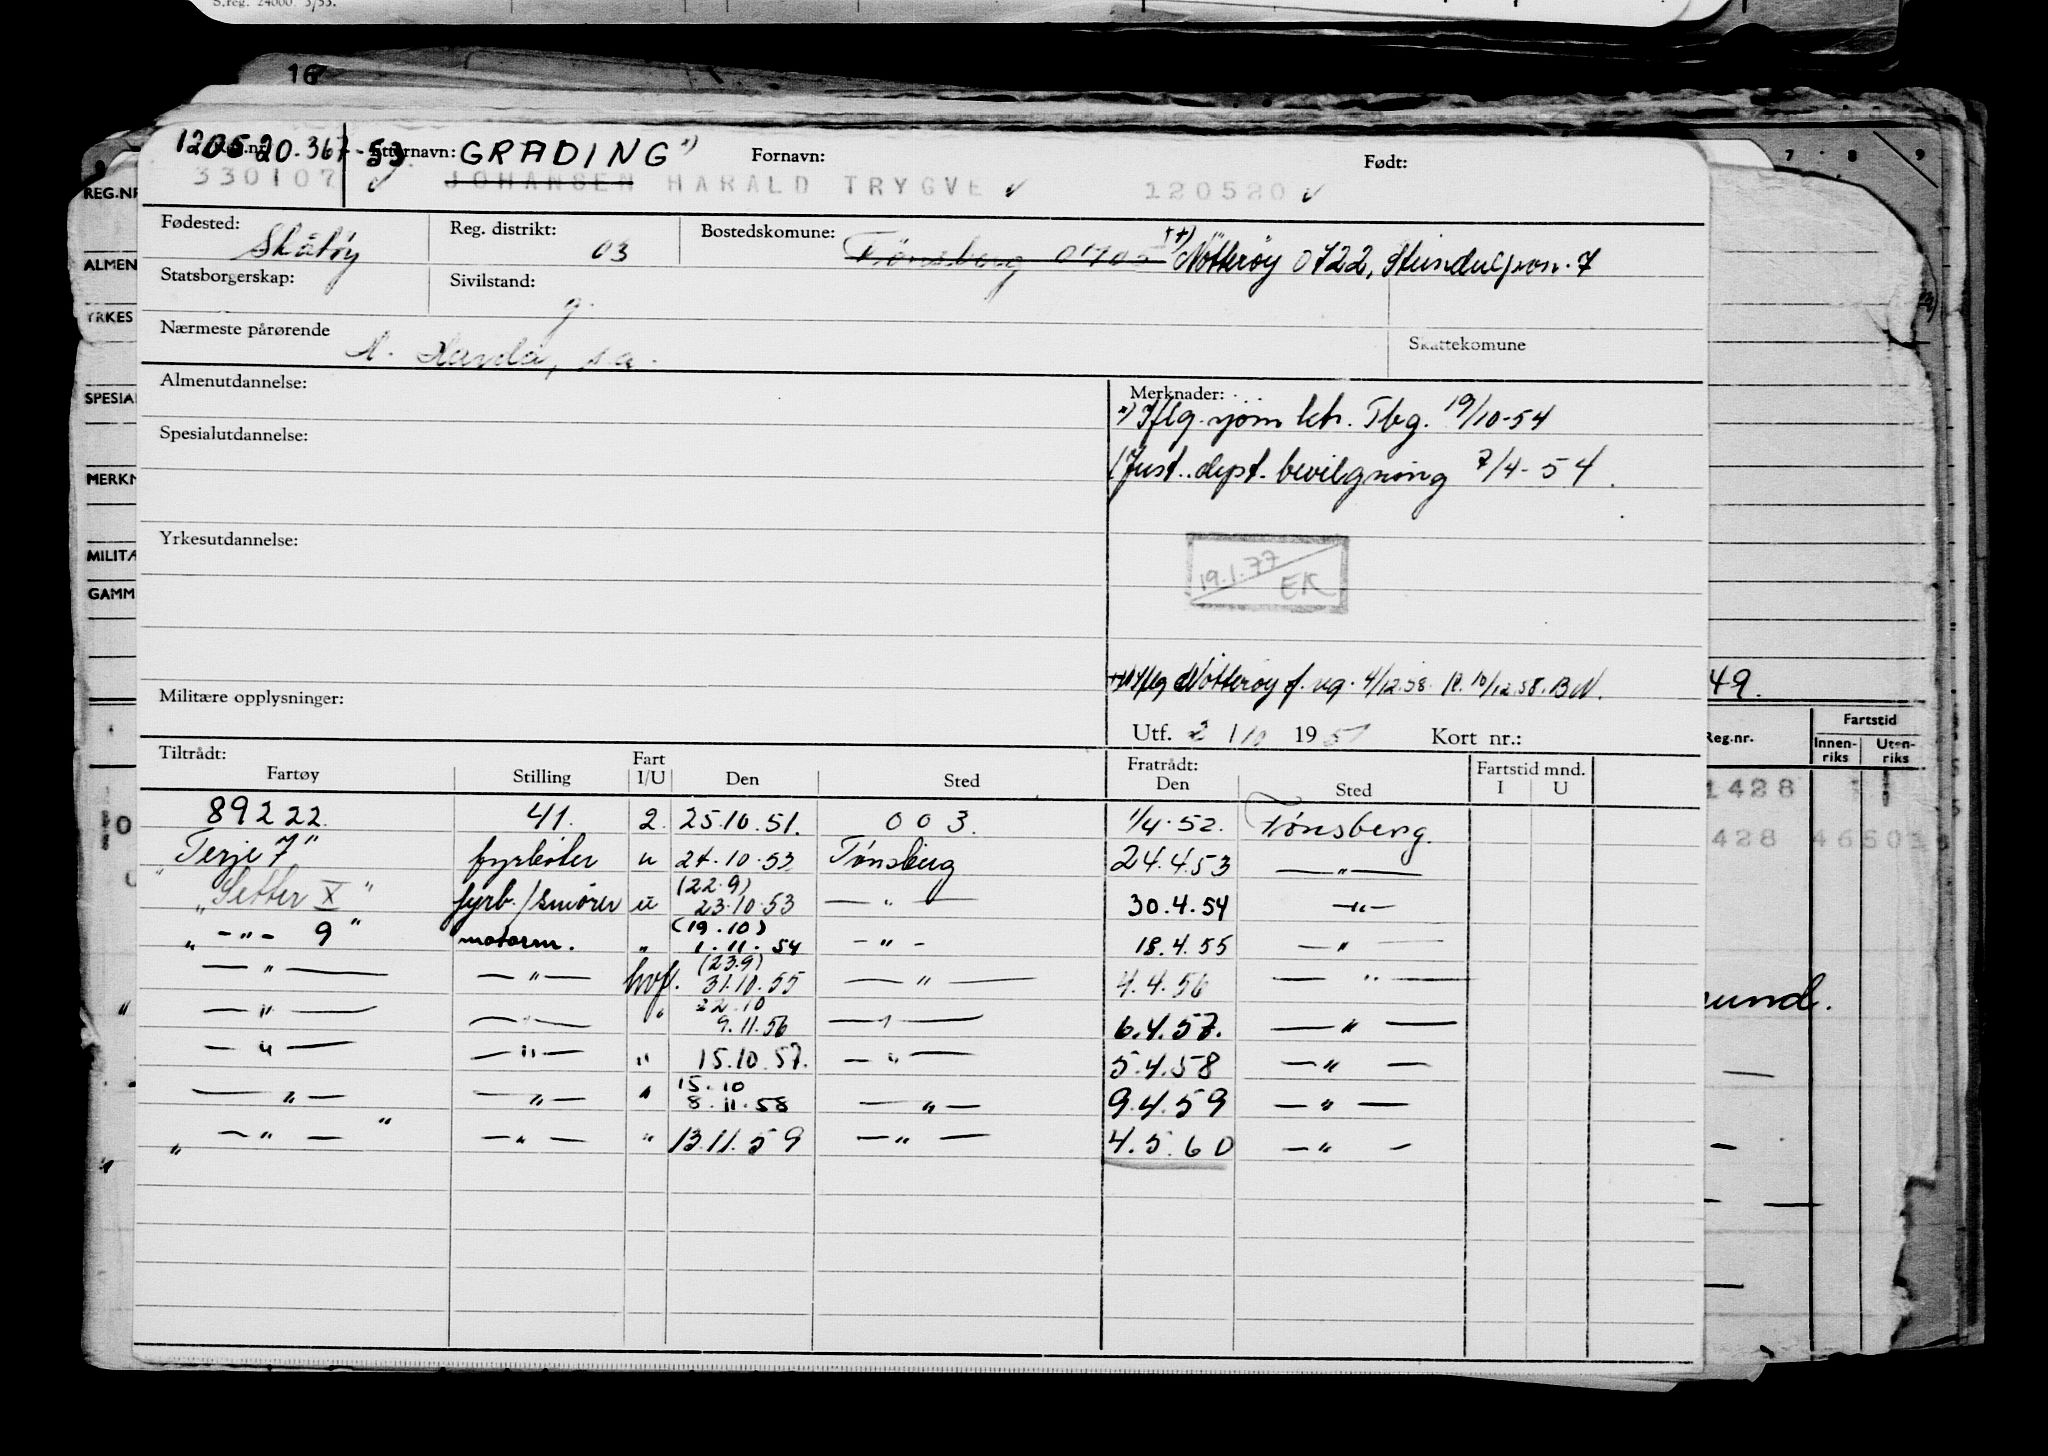 S.reg. 24000. 3/53.
16
120520.367-53 Etternavn: GRADING *) Fornavn: Født:
330107 JOHANSEN HARALD TRYGVE 120520
Fødested: Skåtøy Reg. distrikt: 03 Bostedskomune: Tønsberg 0705 ++) Nøtterøy 0722,
Statsborgerskap: Sivilstand: g.
Nærmeste pårørende s.a. Skattekomune
Almenutdannelse: Merknader:
*) Iflg. Tbg. 19/10-54
Spesialutdannelse: (Just. dept. bevilgning 7/4-54.
Yrkesutdannelse:
19.1.77 EK
++) Iflg Nøtterøy f. 4/12.58. 10/12.58. BN.
Militære opplysninger:
Utf. 2/10 1951 Kort nr.:
Tiltrådt: Fart Fratrådt: Fartstid mnd.
Fartøy Stilling I/U Den Sted Den Sted I U
89222. 41. 2. 25.10.51. 003. 1/4.52. Tønsberg.
"Terje 7" fyrbøter u 24.10.53 Tønsberg 24.4.53 — " —
"Setter X" fyrb./smører u (22.9) 23.10.53 — " — 30.4.54 — " —
" — " — 9" motorm. " (19.10) 1.11.54 — " — 18.4.55 — " —
— " — — " — hvf. (23.9) 31.10.55 — " — 4.4.56 — " —
— " — — " — " 22.10 9.11.56 — " — 6.4.57. — " —
— " — — " — " 15.10.57. — " — 5.4.58 — " —
— " — — " — " 15.10 8.11.58 — " — 9.4.59 — " —
" — " — " — " — " 13.11.59 — " — 4.5.60 — " —
REG.NR
ALMEN
YRKES
SPESIAL
MERKN
MILITÆ
GAMM
7 8 9
49.
Reg.nr. Fartstid
Innen-riks Uten-riks
1428
428 46503
sund.